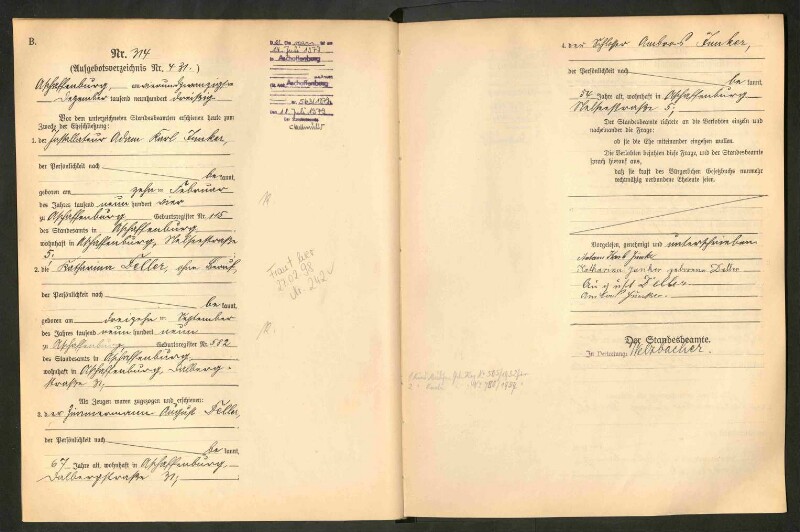 B.
Nr. 314
(Aufgebotsverzeichnis Nr. 431.)
Aschaffenburg, am neunundzwanzigsten
Dezember tausend neunhundert dreißig
Vor dem unterzeichneten Standesbeamten erschienen heute zum
Zwecke der Eheschließung:
1. der Installateur Adam Karl Junker,
der Persönlichkeit nach
be kannt,
geboren am zehn= Februar
des Jahres tausend neun hundert vier
zu Aschaffenburg Geburtsregister Nr. 115
des Standesamts in Aschaffenburg
wohnhaft in Aschaffenburg,
5;
2. die Katharina Deller, ohne Beruf,
der Persönlichkeit nach
be kannt,
geboren am dreizehn= September
des Jahres tausend neun hundert neun
zu Aschaffenburg Geburtsregister Nr. 582
des Standesamts in Aschaffenburg
wohnhaft in Aschaffenburg, Dalberg=
straße 31;
Als Zeugen waren zugezogen und erschienen:
3. der Zimmermann August Deller,
der Persönlichkeit nach
be kannt,
67 Jahre alt, wohnhaft in Aschaffenburg
Dalbergstraße 31;
Juli 1979
Aschaffenburg
Juli 1979
Traut hier
Nr. 242
4. der Schlosser Ambros Junker,
der Persönlichkeit nach
be kannt,
54 Jahre alt, wohnhaft in Aschaffenburg
5;
Der Standesbeamte richtete an die Verlobten einzeln und
nacheinander die Frage:
ob sie die Ehe miteinander eingehen wollen.
Die Verlobten bejahten diese Frage, und der Standesbeamte
sprach hierauf aus,
daß sie kraft des Bürgerlichen Gesetzbuchs nunmehr
rechtmäßig verbundene Eheleute seien.
Vorgelesen, genehmigt und unterschrieben
Adam Karl Junker
Katharina Junker geborene Deller
August Deller
Ambros Junker.
Der Standesbeamte.
In Vertretung: Welzbacher.